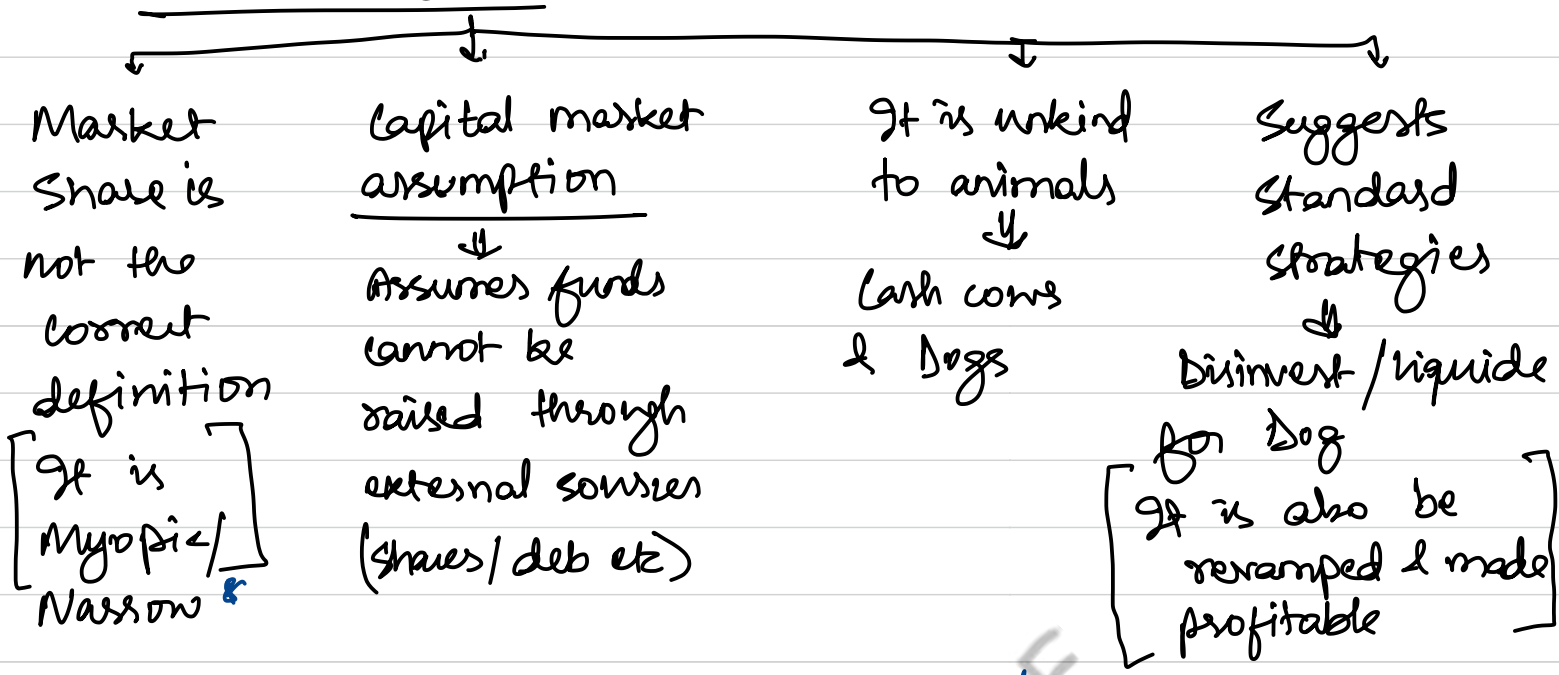 Market
Share is
not the
correct
definition
[It is
Myopic/
Narrow]
Capital market
assumption
Assumes funds
cannot be
raised through
external sources
(shares/deb etc)
It is unkind
to animals
Cash cows
& Dogs
Suggests
Standard
strategies
Disinvest/liquide
for Dog
[It is also be
revamped & made
profitable]